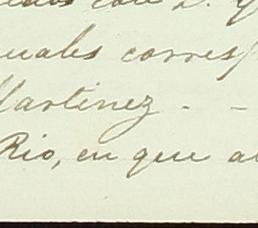 con D.
uales corresp
Martinez - -
Rio, en que a